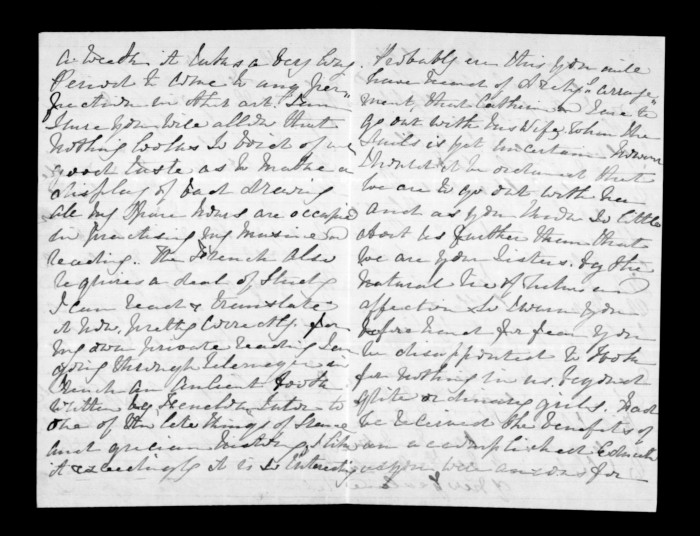 a week it takes a very long
Period to come to any per=
fection in that art. I am
sure you will allow that
nothing looks so void of any
good taste as to make a
display of bad drawing
all my spare hours are occupied
in practising my music and
reading. The French also
requires a deal of study
I can read & translate
it now, pretty correctly. for
my own private reading I am
going through Telemaque in
French an ancient book
written by Fenelon, tutor to
one of the late Kings of France
and grecian history, I like
it exceedingly it is so interesting
Probably ere this you will
have heard of arrange"
ment, that Cathrin and I are to
go out with his Wife, when she
sails is yet uncertain However
should it be ordained that
we are to go out with her
and as you know so little
about us further than that
we are your Sisters. by the
natural tie of nature and
affection so I warn you
beforehand for fear you
be disappointed to look
for nothing in us, beyond
quite ordinary girls. Had
we received the benefits of
an accomplished Educat
as you were anxious for